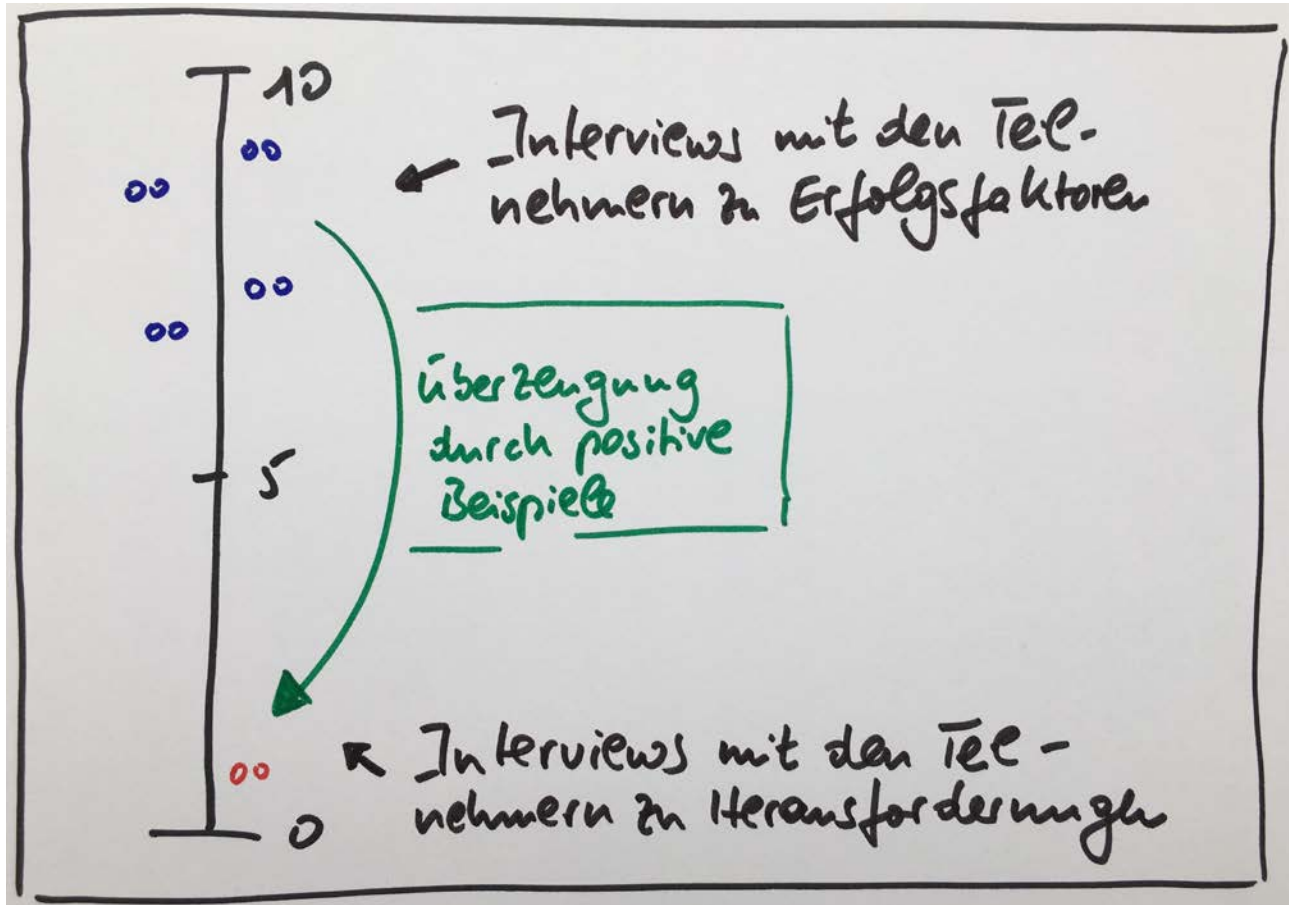 10
Interviews mit den Teil-
nehmern zu Erfolgsfaktoren
überzeugung
durch positive
Beispiele
5
Interviews mit den Teil-
nehmern zu Herausforderungen
0